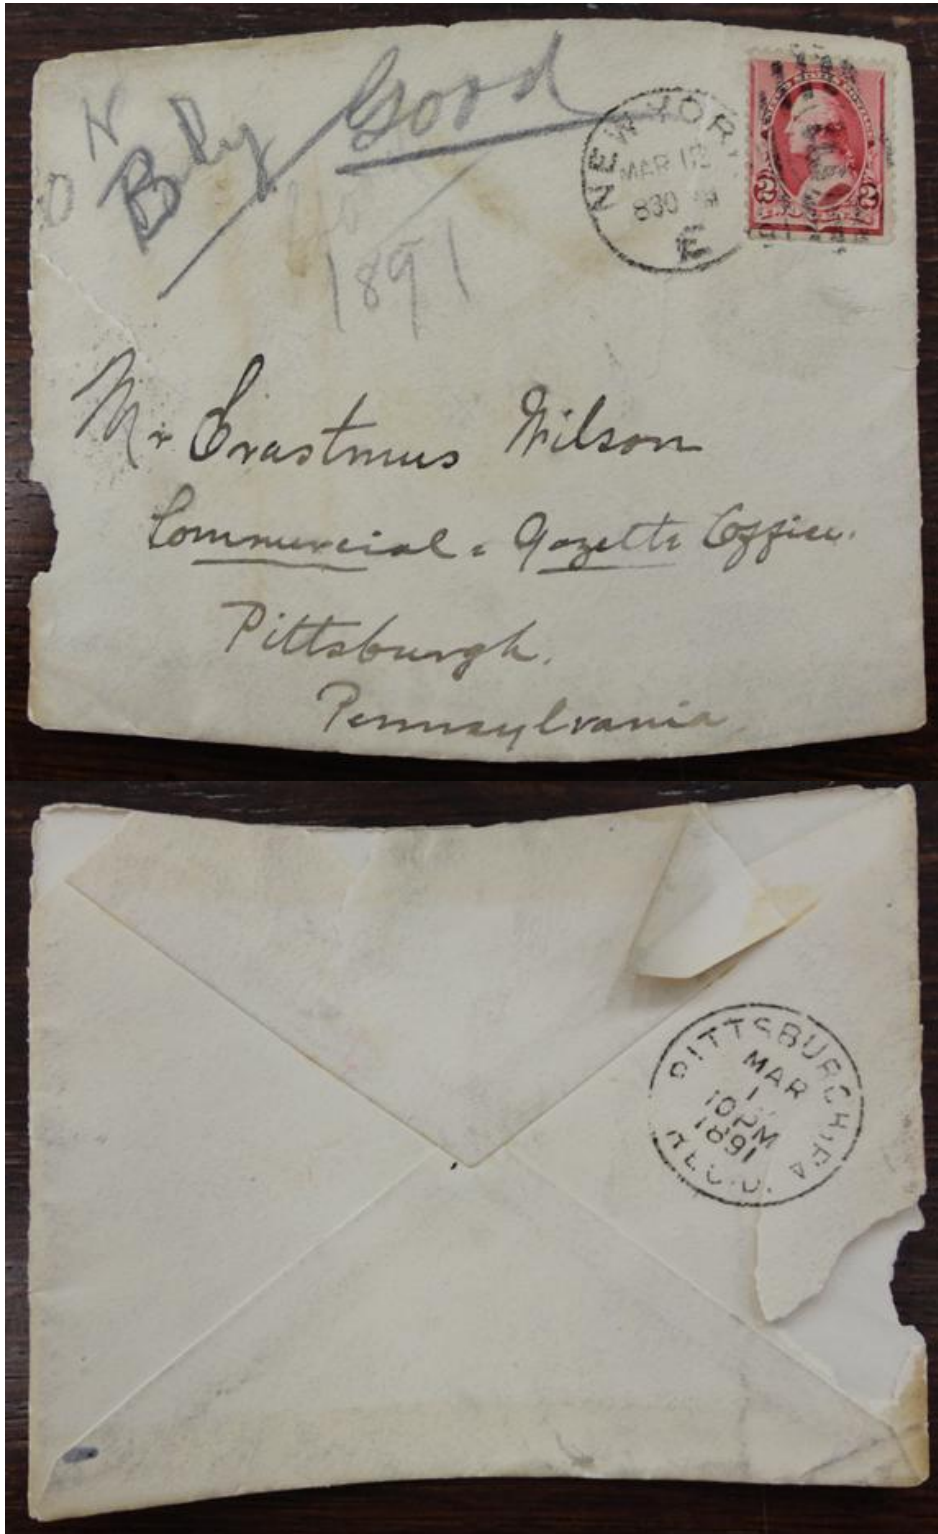 Bly Good
1891
NEW YORK
MAR 12
830
E
2 2
Mr Erastmus Wilson
Commercial = Gazette Office.
Pittsburgh.
Pennsylvania
PITTSBURGH, PA
MAR
1
10 PM
1891
REC'D.